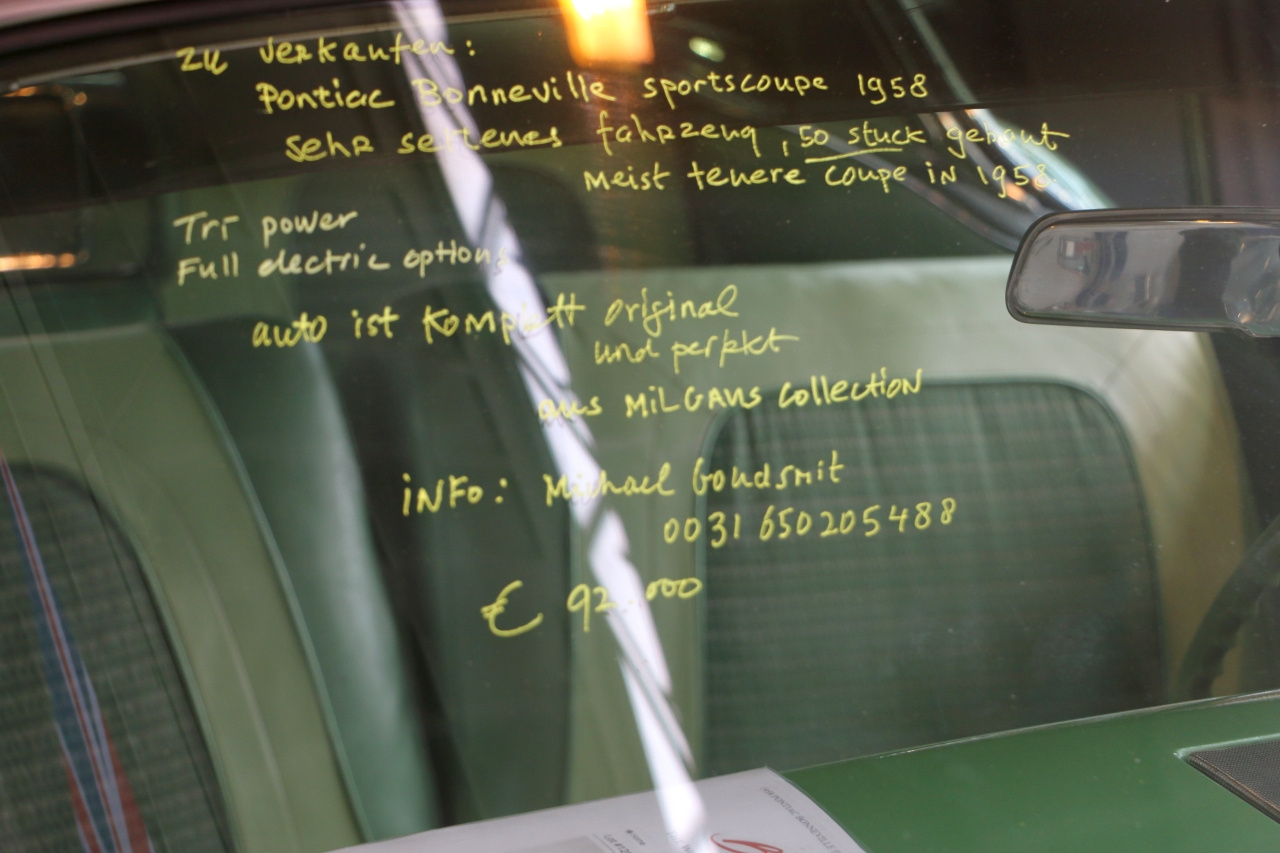 zu verkaufen:
Pontiac Bonneville sportscoupe 1958
sehr seltenes fahrzeug, 50 stuck gebaut
Meist teuere coupe in 1958
Tri power
Full electric options
auto ist Komplett original
und perfekt
aus MiLGANS collection
iNFo: Michael Goudsmit
0031 650205488
€ 92.000